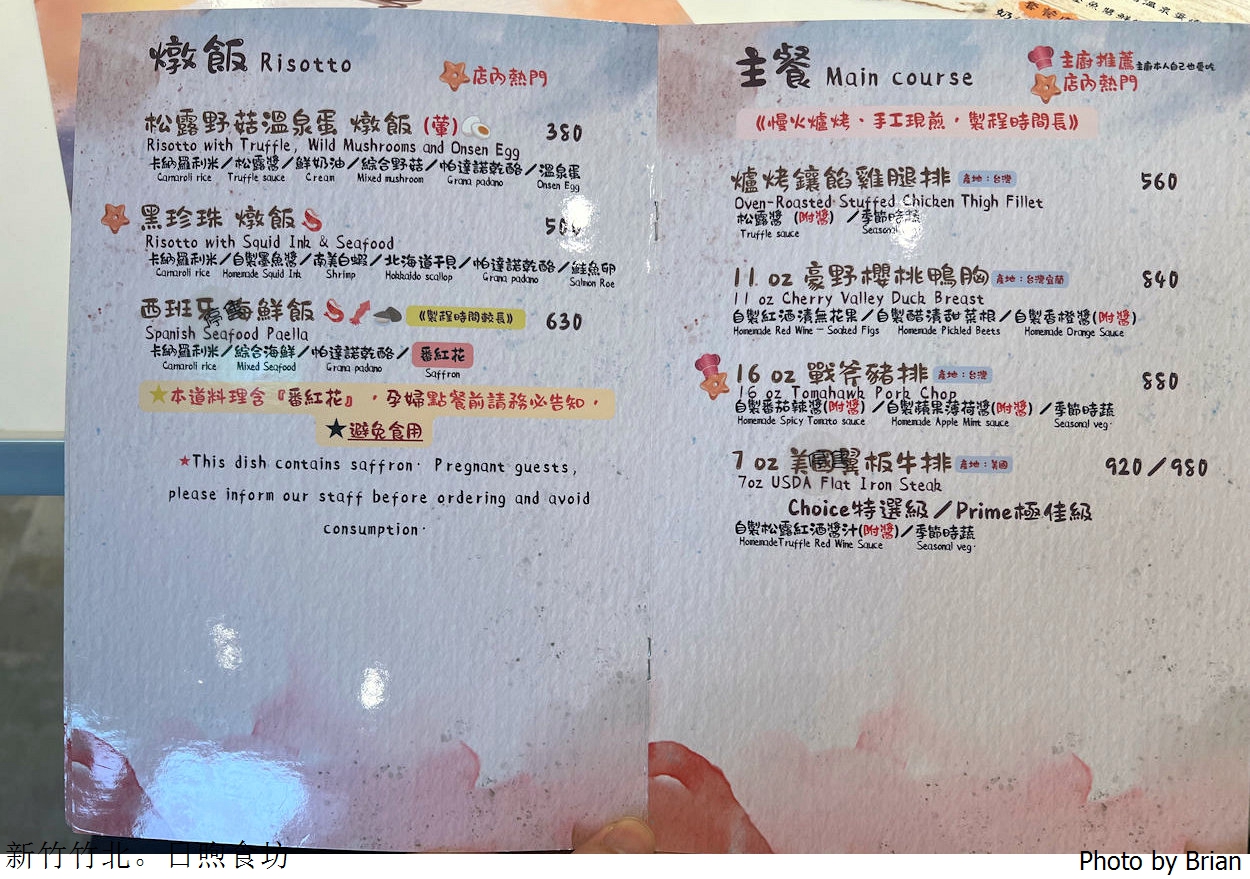 燉飯 Risotto
店內熱門
松露野菇溫泉蛋 燉飯 (葷) 380
Risotto with Truffle, Wild Mushrooms and Onsen Egg
卡納羅利米/松露醬/鮮奶油/綜合野菇/帕達諾乾酪/溫泉蛋
Camaroli rice Truffle sauce Cream Mixed mushroom Grana padano Onsen Egg
黑珍珠 燉飯
Risotto with Squid Ink & Seafood
卡納羅利米/自製墨魚醬/南美白蝦/北海道干貝/帕達諾乾酪/鮭魚卵
Camaroli rice Homemade Squid Ink Shrimp Hokkaido scallop Grana padano Salmon Roe
西班牙海鮮飯 《製程時間較長》 630
Spanish Seafood Paella
卡納羅利米/綜合海鮮/帕達諾乾酪/番紅花
Camaroli rice Mixed Seafood Grana padano Saffron
★本道料理含『番紅花』,孕婦點餐前請務必告知,
★避免食用
★This dish contains saffron. Pregnant guests,
please inform our staff before ordering and avoid
consumption.
主餐 Main course
主廚推薦主廚本人自己也愛吃
店內熱門
《慢火爐烤、手工現煎,製程時間長》
爐烤鑲餡雞腿排 產地:台灣 560
Oven-Roasted Stuffed Chicken Thigh Fillet
松露醬 (附醬) /季節時蔬
Truffle sauce Seasonal
11 oz 豪野櫻桃鴨胸 產地:台灣宜蘭 840
11 oz Cherry Valley Duck Breast
自製紅酒漬無花果/自製醋漬甜菜根/自製香橙醬(附醬)
Homemade Red Wine - Soaked Figs Homemade Pickled Beets Homemade Orange Sauce
16 oz 戰斧豬排 產地:台灣 880
16 oz Tomahawk Pork Chop
自製番茄辣醬(附醬) /自製蘋果薄荷醬(附醬) /季節時蔬
Homemade Spicy Tomato sauce Homemade Apple Mint sauce Seasonal veg.
7 oz 美國翼板牛排 產地:美國 920/980
7oz USDA Flat Iron Steak
Choice特選級/Prime極佳級
自製松露紅酒醬汁(附醬)/季節時蔬
HomemadeTruffle Red Wine Sauce Seasonal veg.
新竹竹北。日煦食坊
Photo by Brian